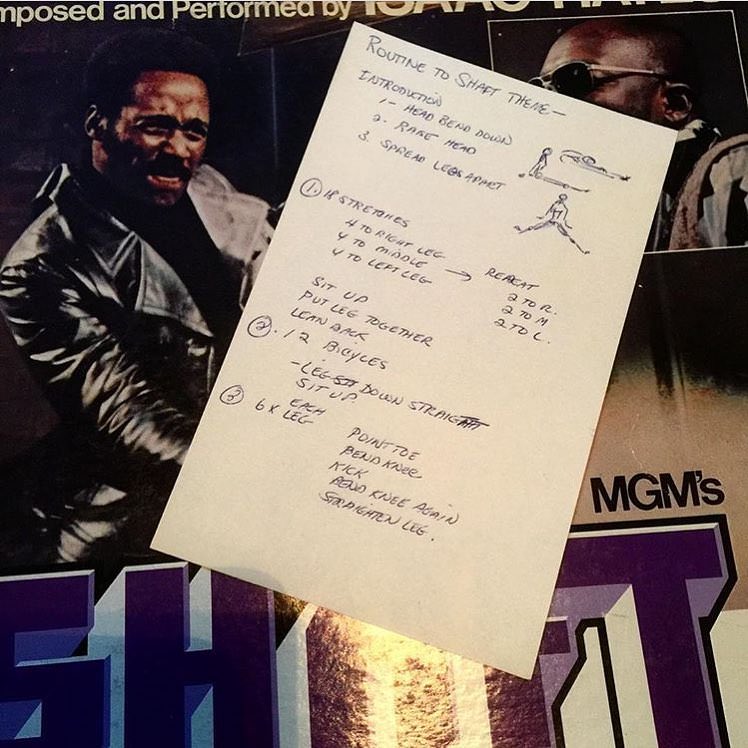 mposed and Performed by ISAAC HAYES
ROUTINE TO SHAFT THEME—
INTRODUCTION
1- HEAD BEND DOWN
2. RAISE HEAD
3. SPREAD LEGS APART
1. 18 STRETCHES
4 TO RIGHT LEG
4 TO MIDDLE → REPEAT
4 TO LEFT LEG
2 TO R.
2 TO M
2 TO L.
SIT UP
PUT LEG TOGETHER
LEAN BACK
2. 12 BICYCLES
-LEG DOWN STRAIGHT
SIT UP.
3 6 X EACH LEG
POINT TOE
BEND KNEE
KICK
BEND KNEE AGAIN
STRAIGHTEN LEG.
MGM's
SH FT